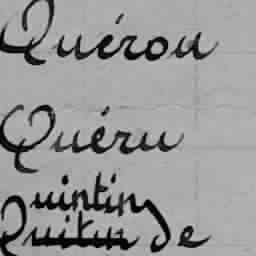 Quérou
Quéru
uintin
Quitin De